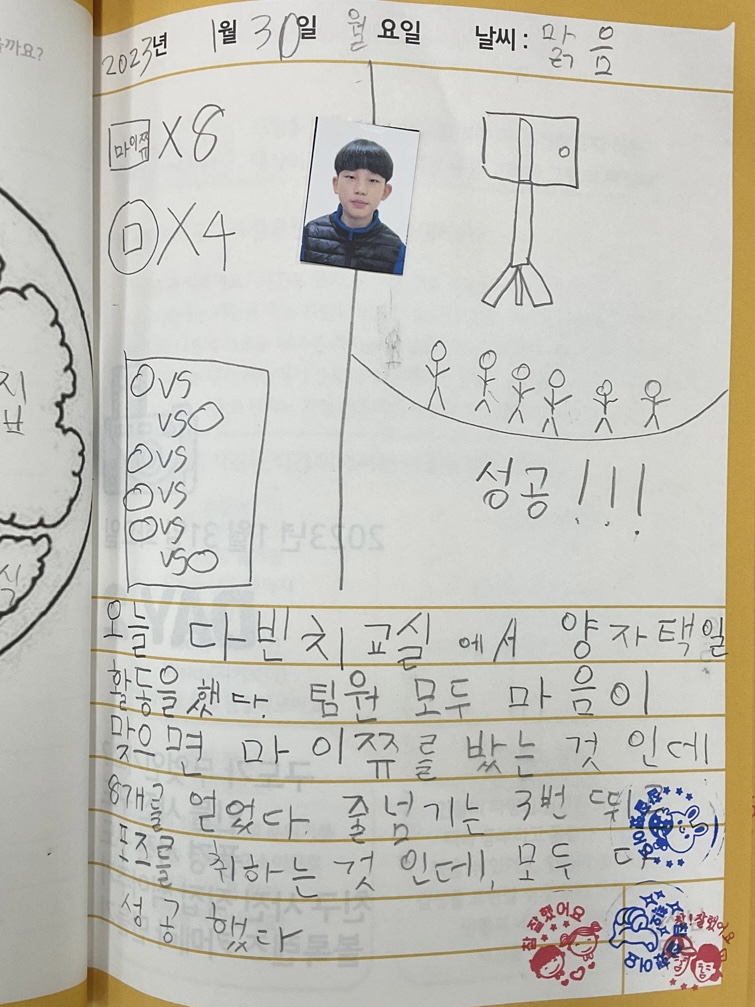 2023년 1월 30일 월요일 날씨: 맑음
마이쮸 X8
ㅁ X4
VS
VS
VS
VS
VS
VS
성공!!!
오늘 다빈치교실에서 양자택일
활동을했다. 팀원 모두 마음이
맞으면 마이쮸를 받는 것 인데
8개를 얻었다. 줄넘기는 3번 뛰고
포즈를 취하는 것 인데, 모두 다
성공 했다
참 잘했어요
참! 잘했어요